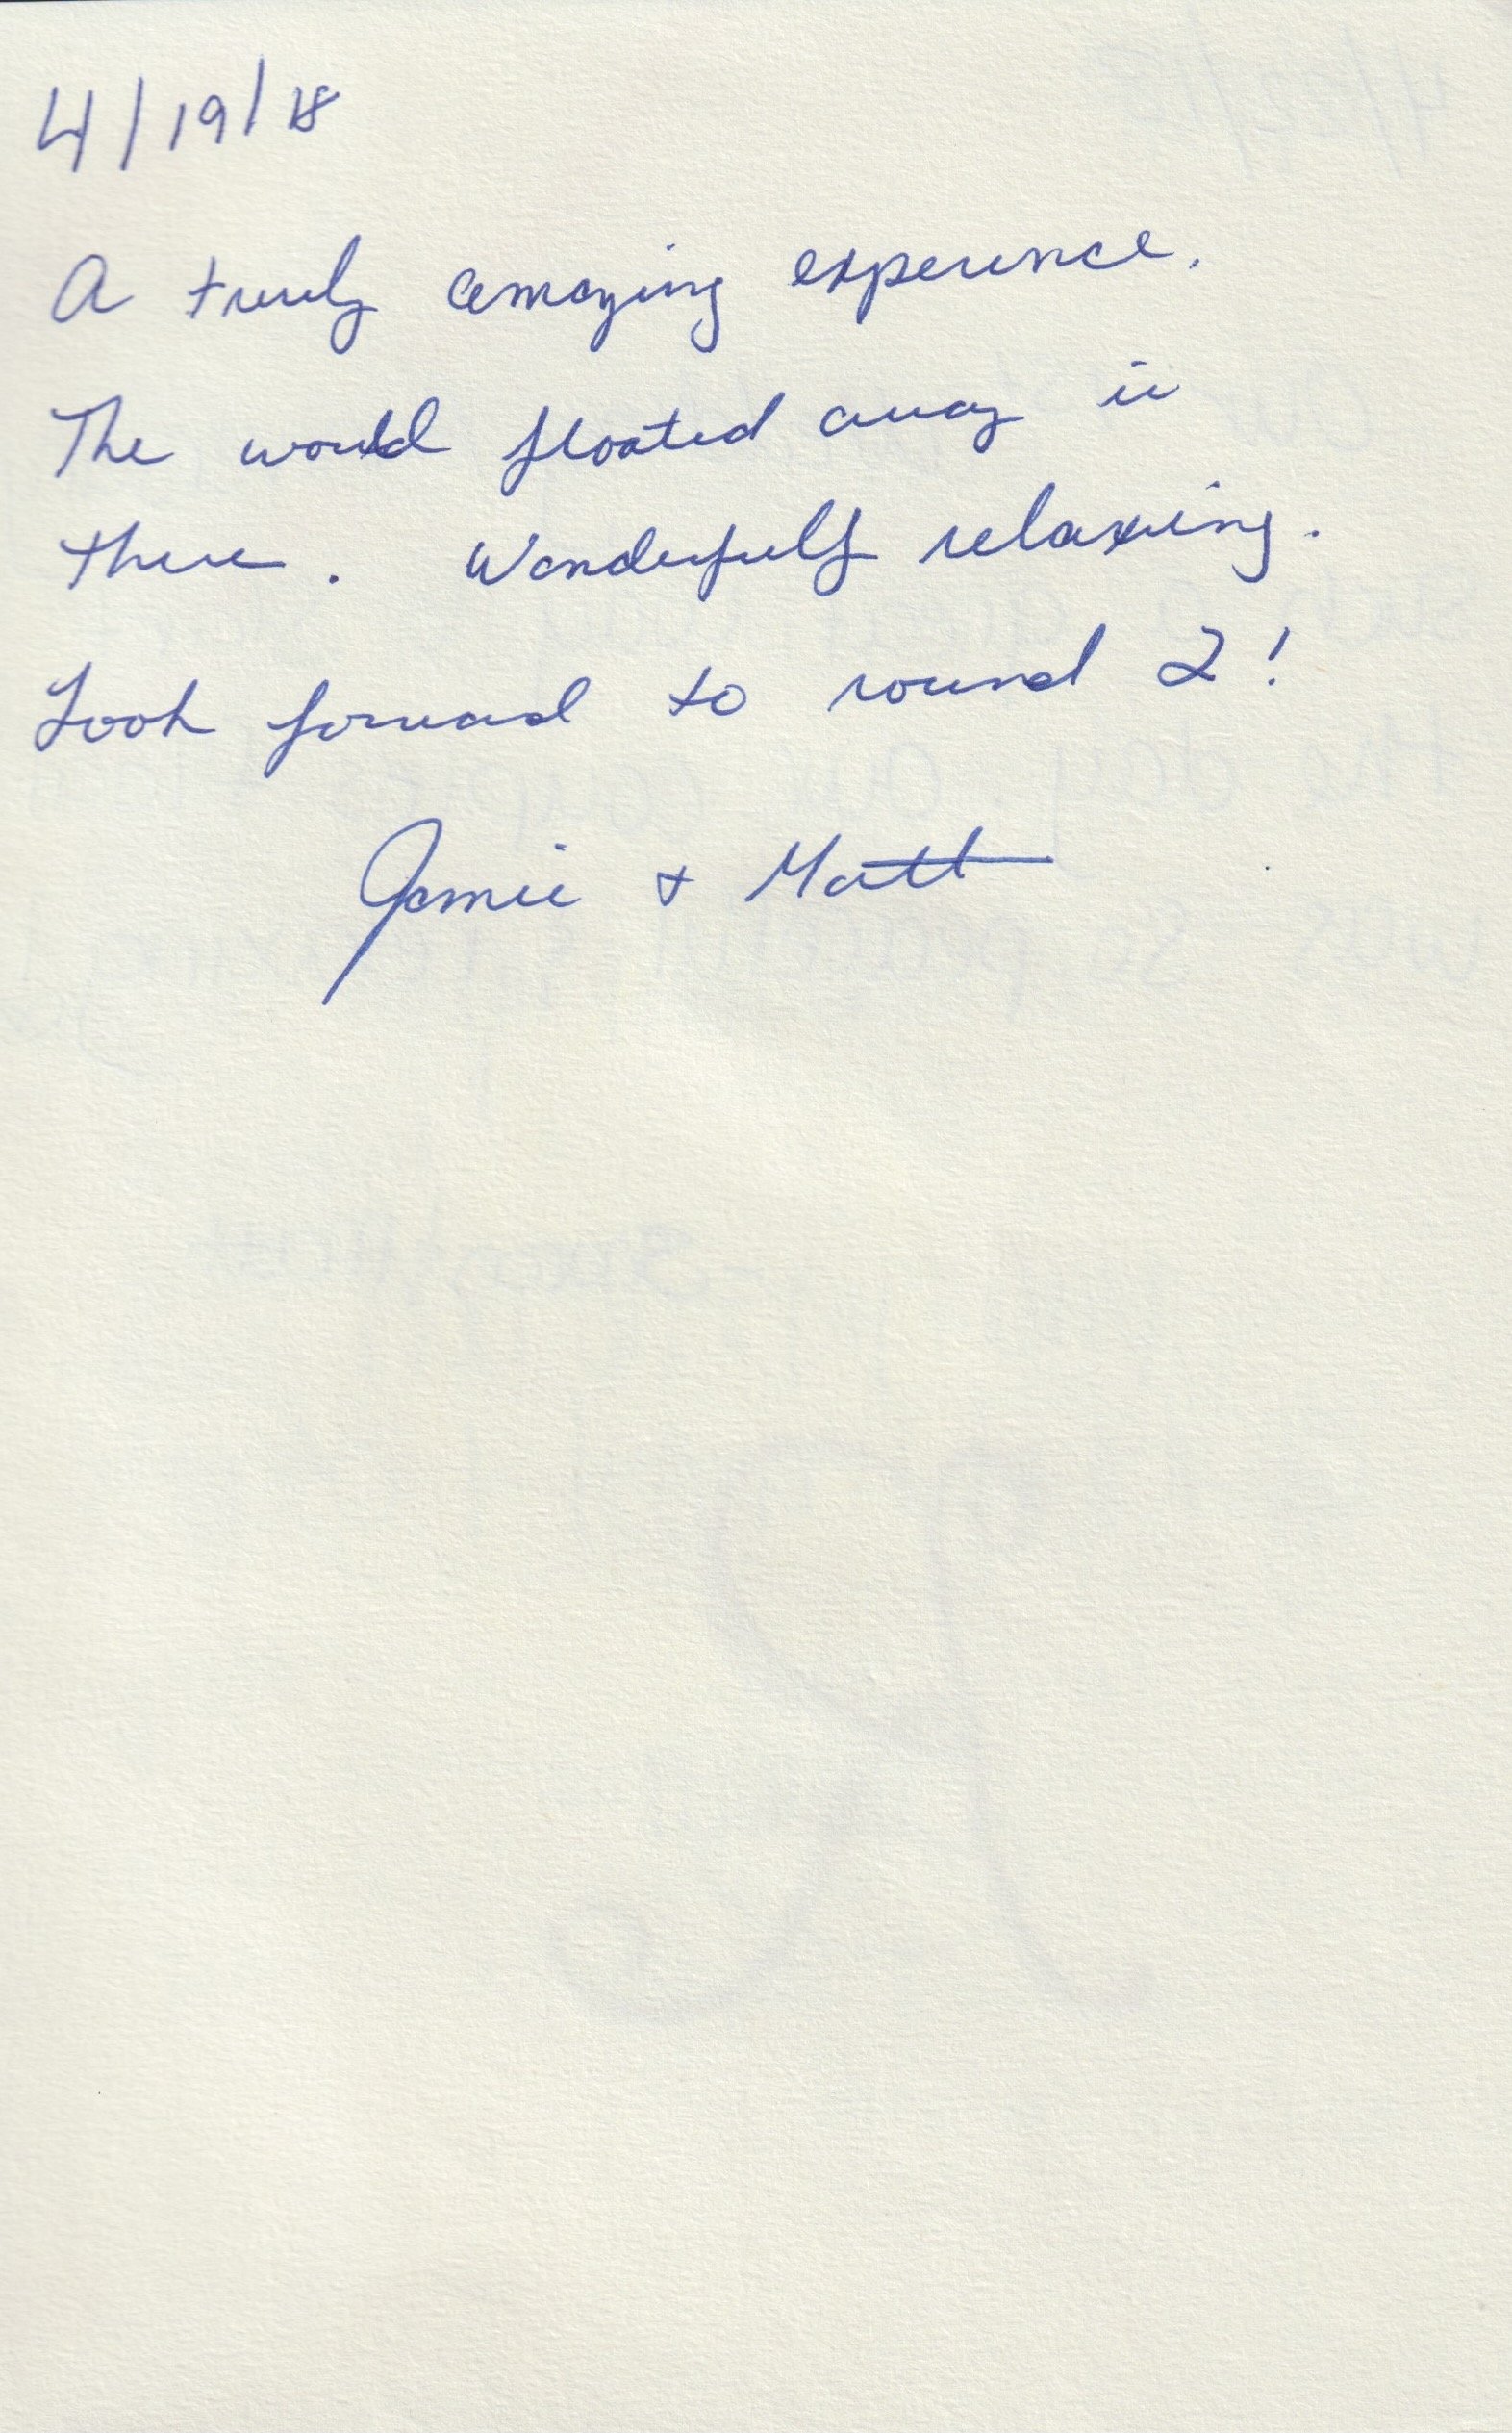 4/19/18
A truly amazing experience.
The world floated away in
there. Wonderfully relaxing.
Look forward to round 2!
Jamie + Matt